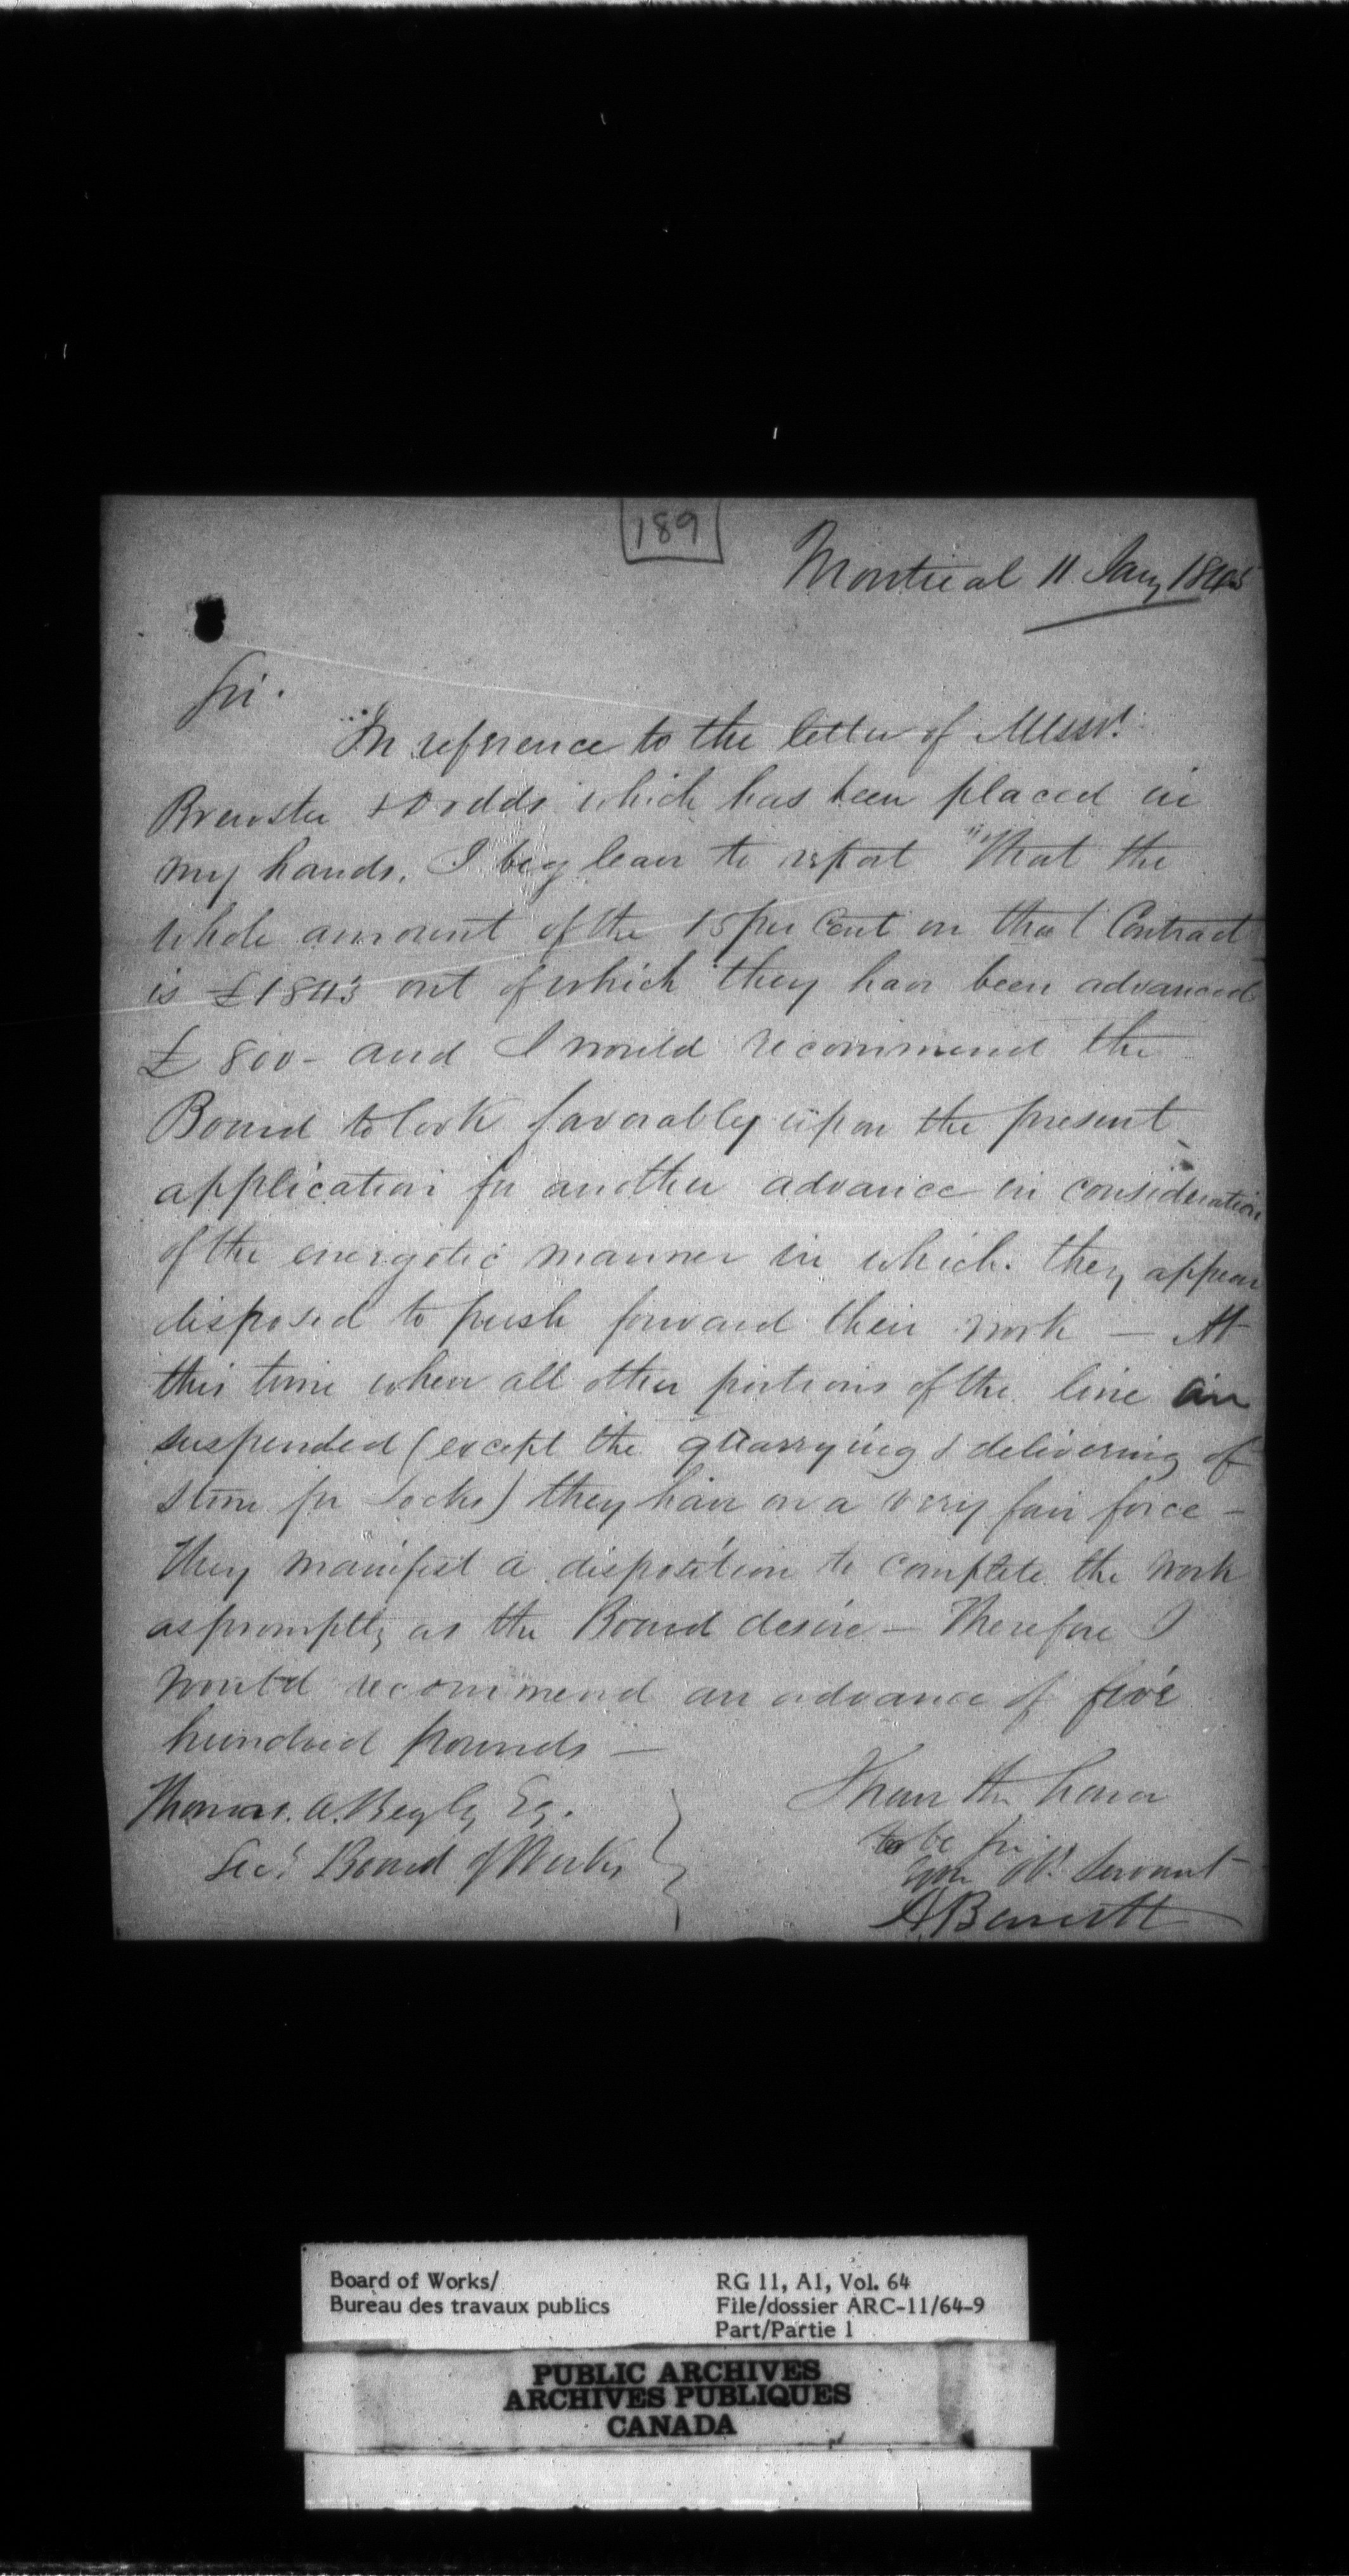 189
Montreal 11 Jany 1845
Sir.
In reference to the letter of Messrs
Brewster & Dodds which has been placed in
my hands. I beg leave to report "That the
whole amount of the 15 per Cent on that Contract
is £1843 out of which they have been advanced
£800 - and I would recommend the
Board to look favorably upon the present
application for another advance in consideration
of the energetic manner in which they appear
disposed to push forward their work — At
this time when all other portions of the line are
suspended (except the quarrying & delivering of
stone for Locks) they have on a very fair force -
They manifest a disposition to complete the work
as promptly as the Board desire — Therefore I
would recommend an advance of five
hundred pounds —
I have the honor
to be Sir
Your Obt Servant
Thomas. A. Begly Esq.
Secy Board of Works
A Barrett
Board of Works/
Bureau des travaux publics
RG 11, A1, Vol. 64
File/dossier ARC-11/64-9
Part/Partie 1
PUBLIC ARCHIVES
ARCHIVES PUBLIQUES
CANADA